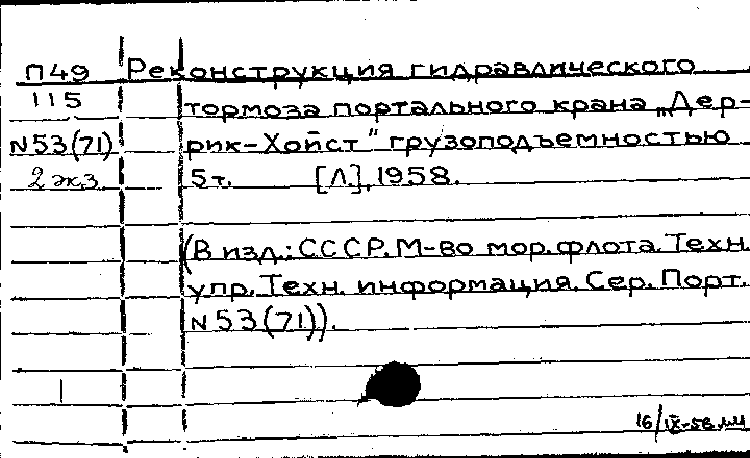 П49 Реконструкция гидравлического
115 тормоза портального крана „Дер-
N53(71) рик-Хойст" грузоподъемностью
2 экз. 5т. [Л.], 1958.
(В изд.: СССР. М-во мор. флота. Техн.
упр. Техн. информация. Сер. Порт.
N53(71)).
16/IX-58